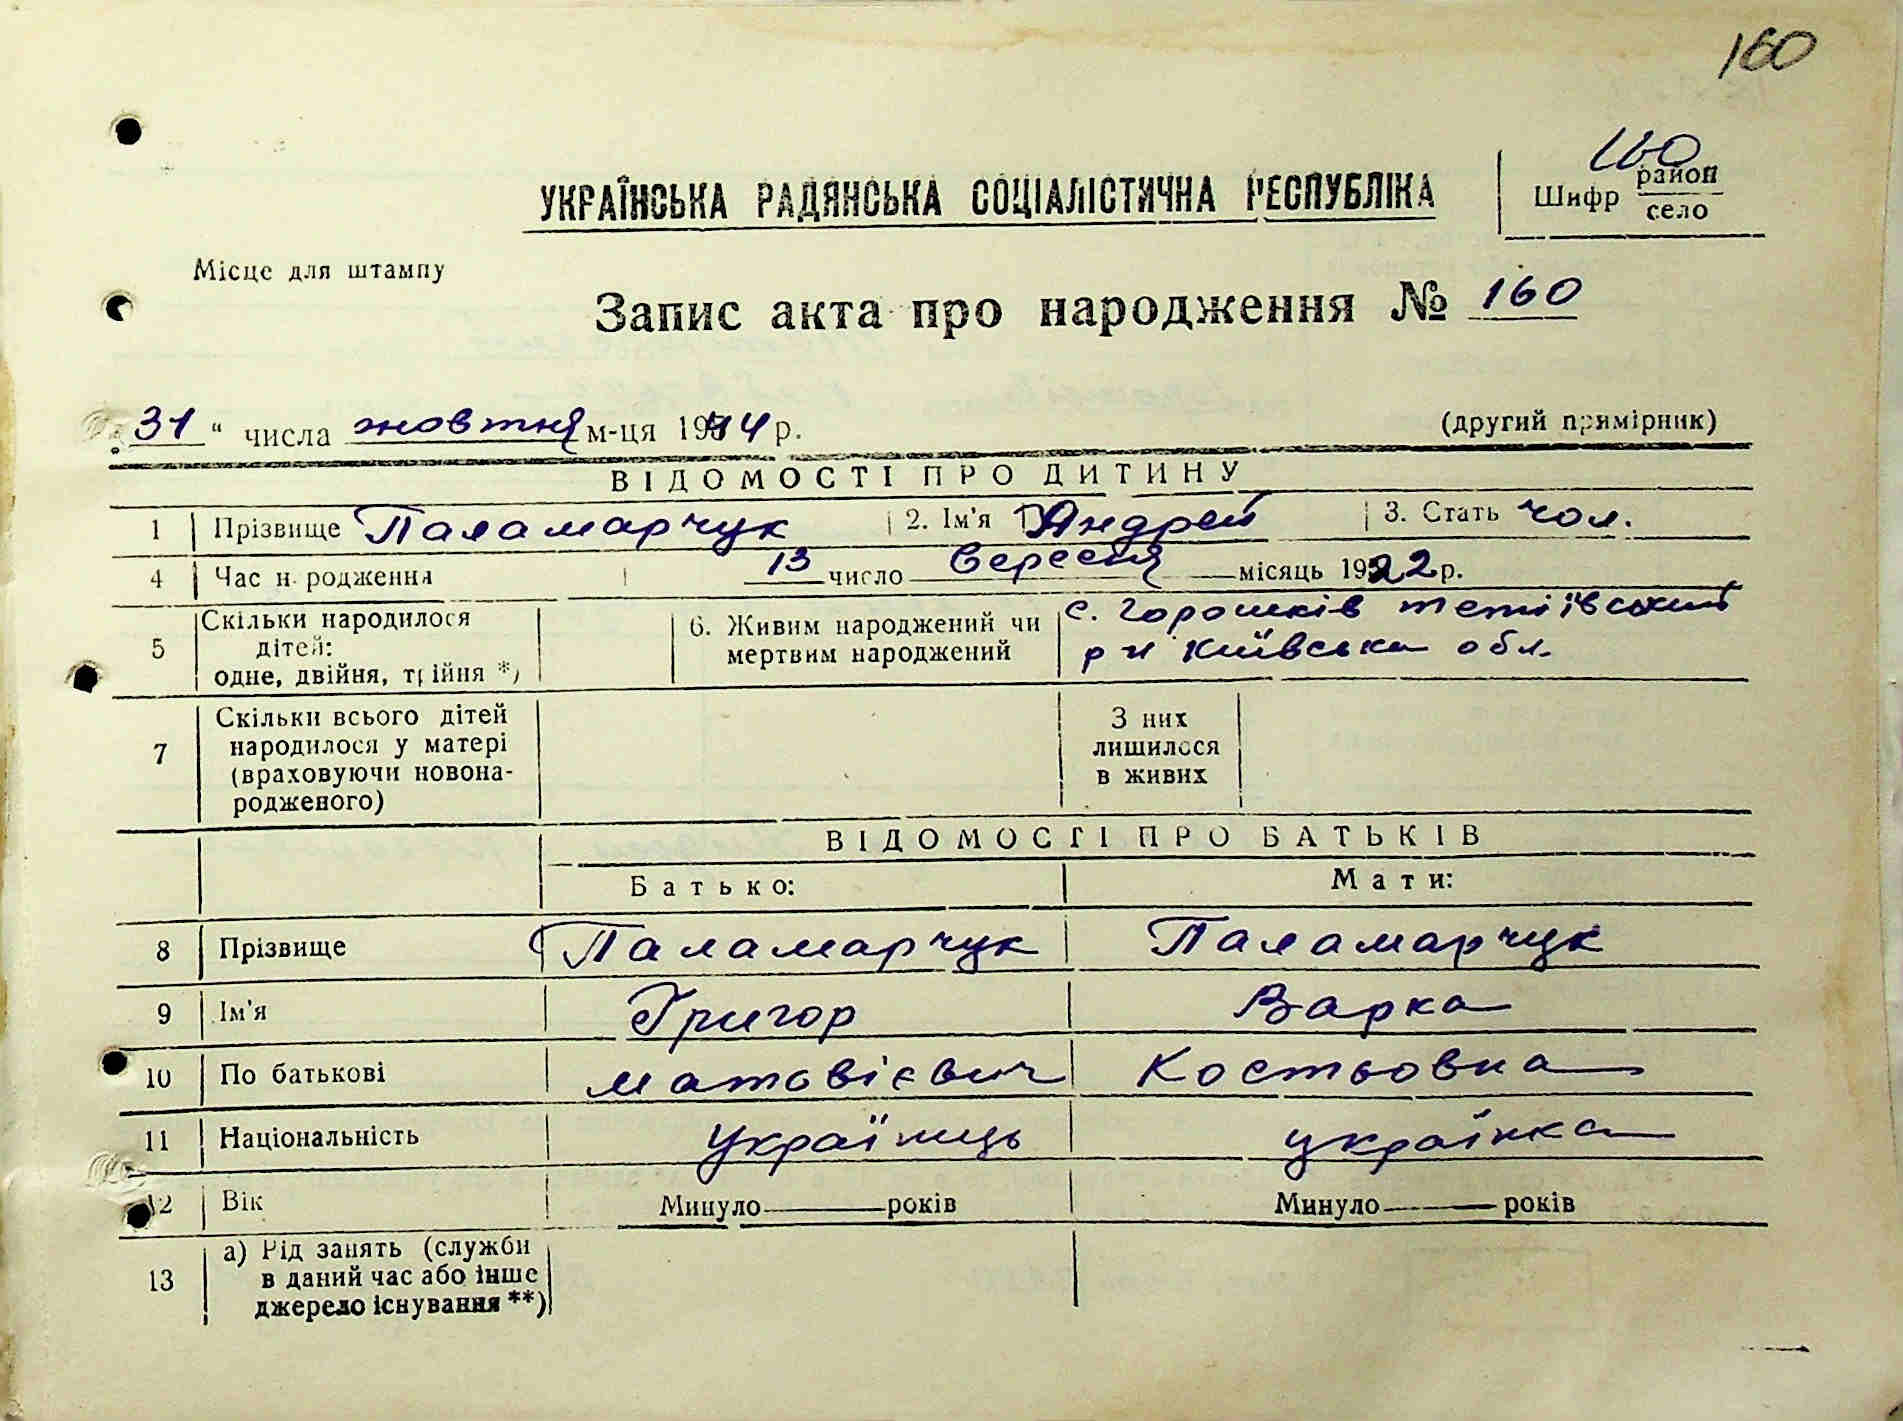 160
160
УКРАЇНСЬКА РАДЯНСЬКА СОЦІАЛІСТИЧНА РЕСПУБЛІКА
Шифр район
село
Місце для штампу
Запис акта про народження № 160
31 " числа жовтня м-ця 1944 р. (другий примірник)
ВІДОМОСТІ ПРО ДИТИНУ
1 Прізвище Паламарчук 2. Ім'я Андрей 3. Стать чол.
4 Час народження 13 число вересня місяць 1922 р.
5 Скільки народилося дітей: одне, двійня, трійня *)
6. Живим народжений чи мертвим народжений
с. Горошків тетіївський
р н Київська обл.
7 Скільки всього дітей народилося у матері (враховуючи новонародженого)
З них лишилося в живих
ВІДОМОСТІ ПРО БАТЬКІВ
Батько: Мати:
8 Прізвище Паламарчук Паламарчук
9 Ім'я Григор Варка
10 По батькові матовієвич Костьовна
11 Національність українць українка
12 Вік Минуло — років Минуло — років
13 а) Рід занять (служби
в даний час або інше
джерело існування **)